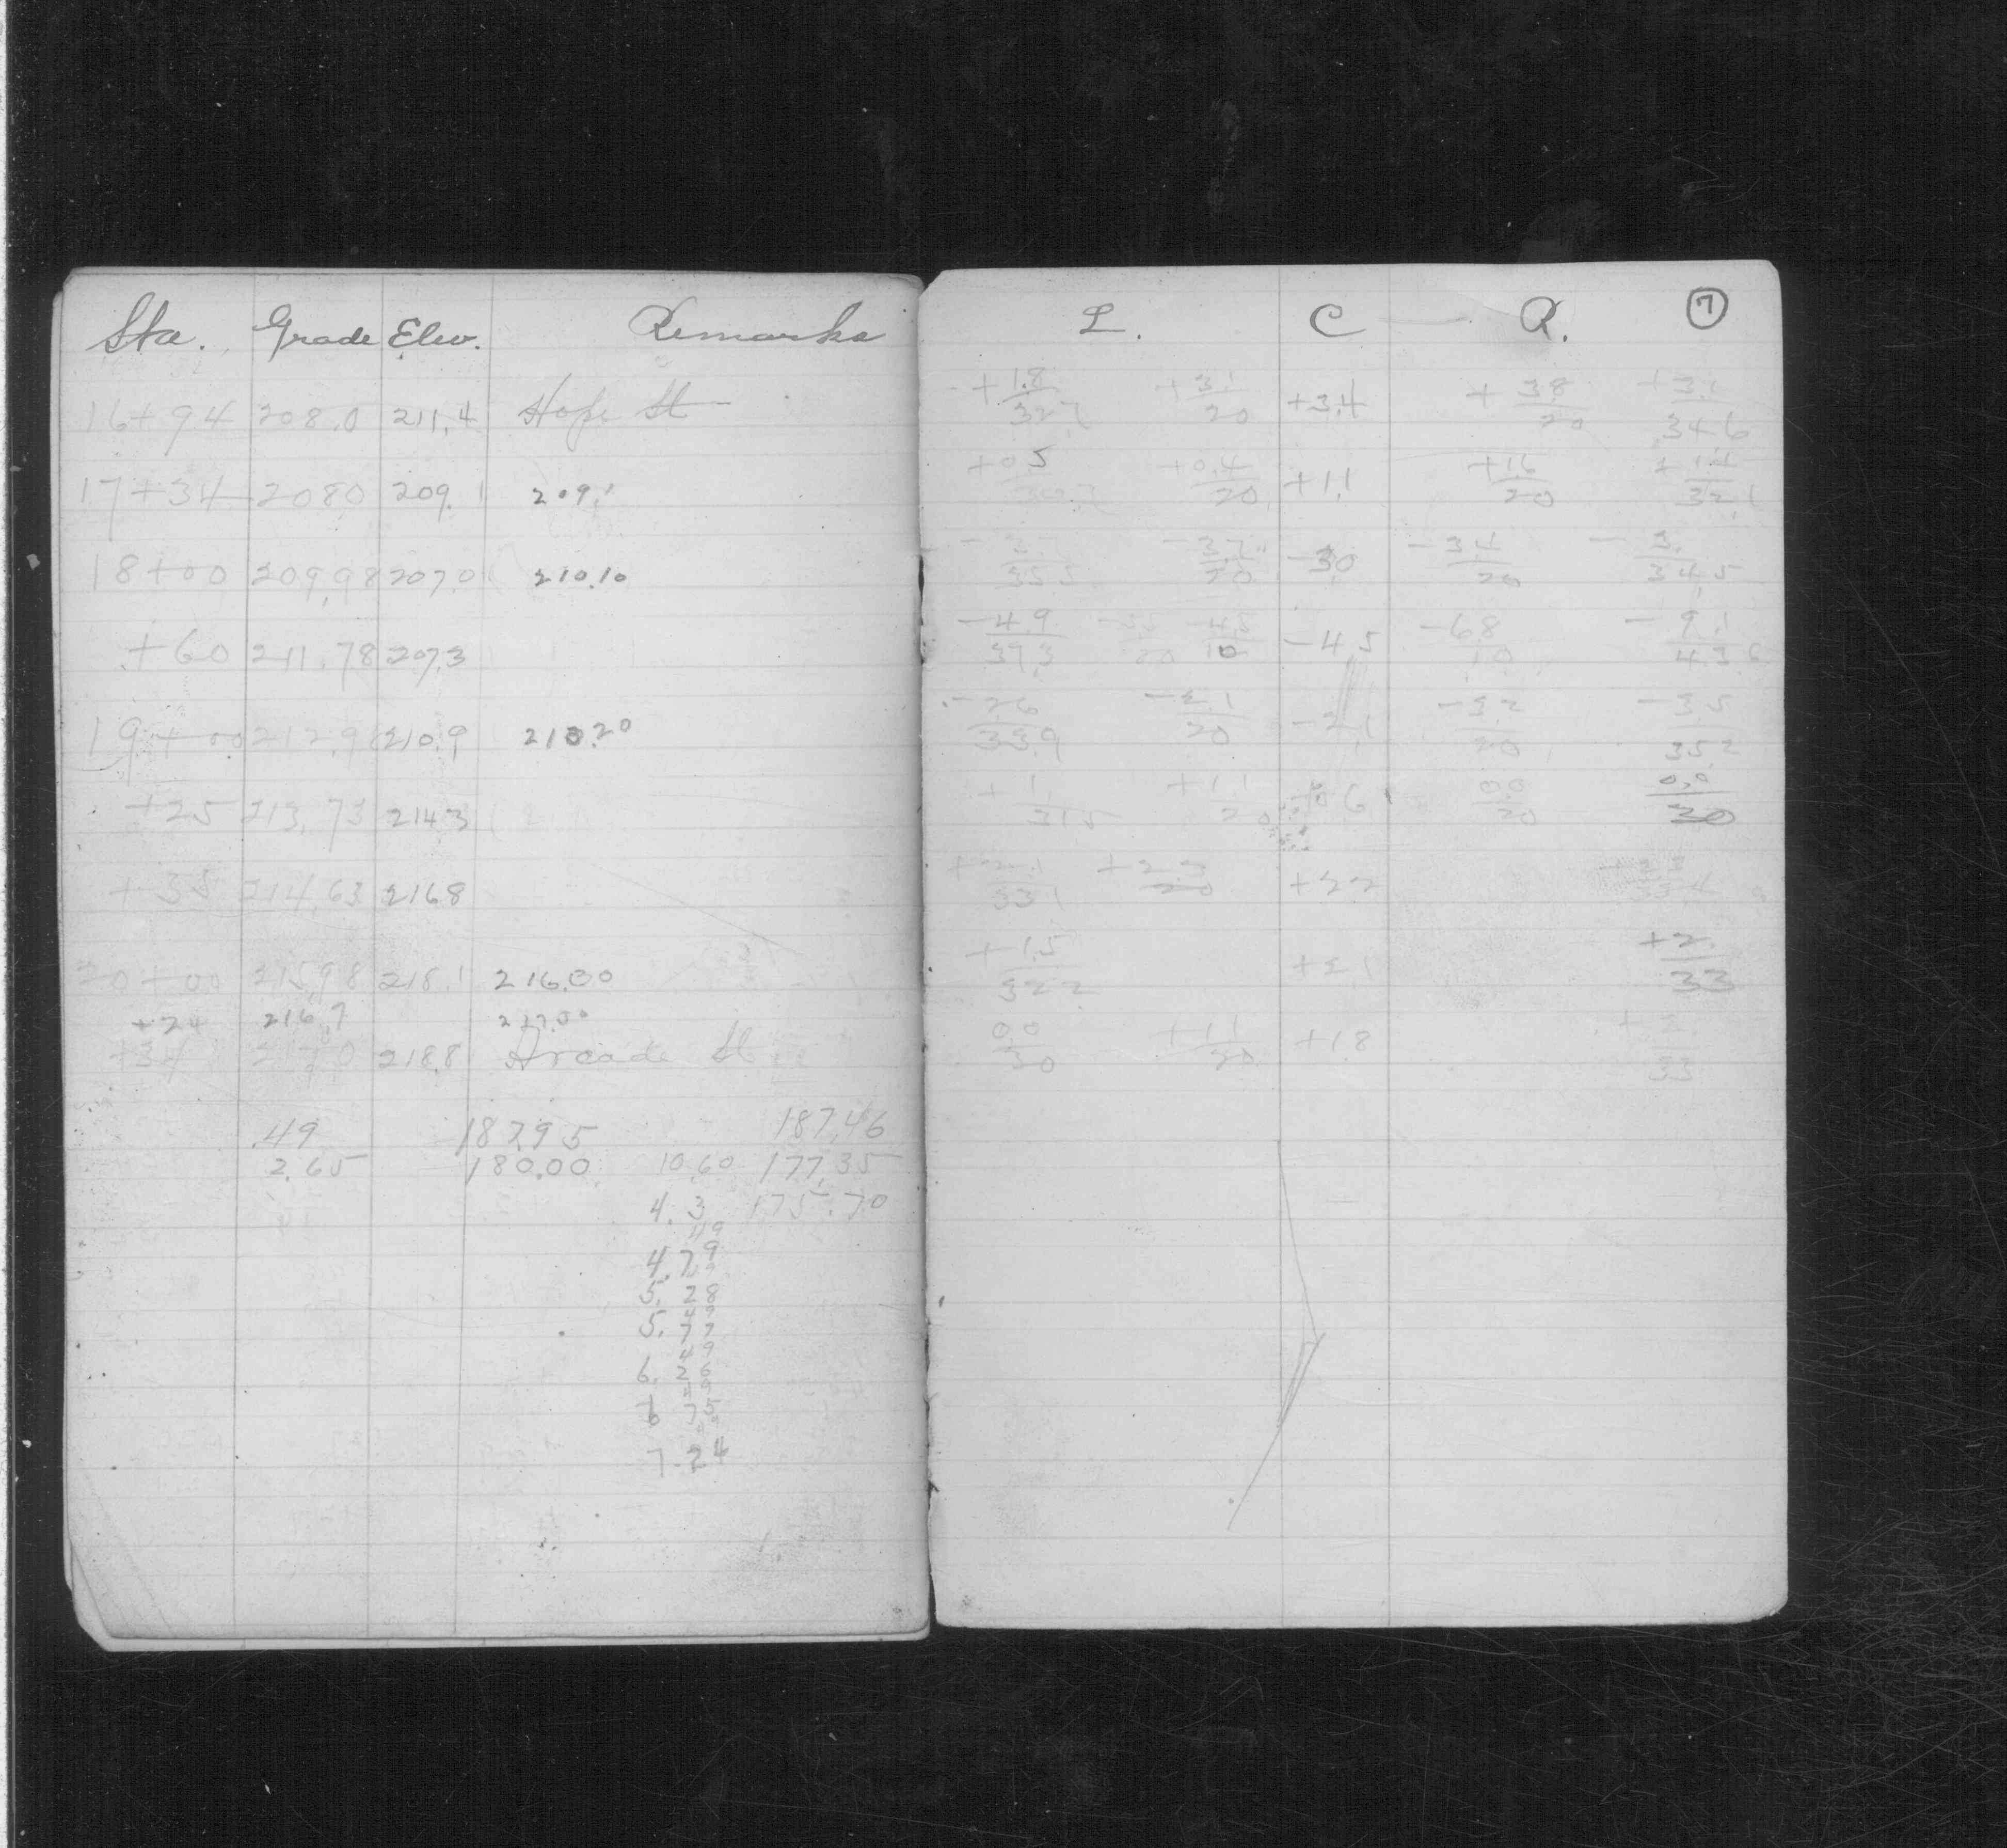 Sta. Grade Elev. Remarks
16+94 208.0 211.4 Hope St
17+34 208.0 209.1 209.1
18+00 209.98 207.0 210.10
+60 211.78 207.3
19+00 212.98 210.9 213.20
+25 213.73 214.3
+55 214.63 216.8
20+00 215.98 218.1 216.00
+24 216.7 217.50
218.8 Arcade St
.49 187.95 187.46
2.65 180.00 10.60 177.35
4.3 175.70
49
4.79
5.28
5.77
6.26
6.75
7.24
L. C R. 7
+1.8/32.7 +3.1/20 +3.4 +3.8/20 +3.1/34.6
+0.5 +0.4/20 +1.1 +1.6/20 +1.4/32.1
-3.7/20 -3.0 -3.4/20 34.5
-4.9/37.3 -4.5/10 -4.5 -6.8/10 -9.1/43.6
-2.6/33.9 -2.1/20 -2.1 -3.2/20 -3.5/35.2
31.5 +1.1/20 +0.6 0.0/20 0.0/30
33.1 +2.2
+1.5/32.2 +2.1 +2./33
0.0/30 +1.1/20 +1.8 33